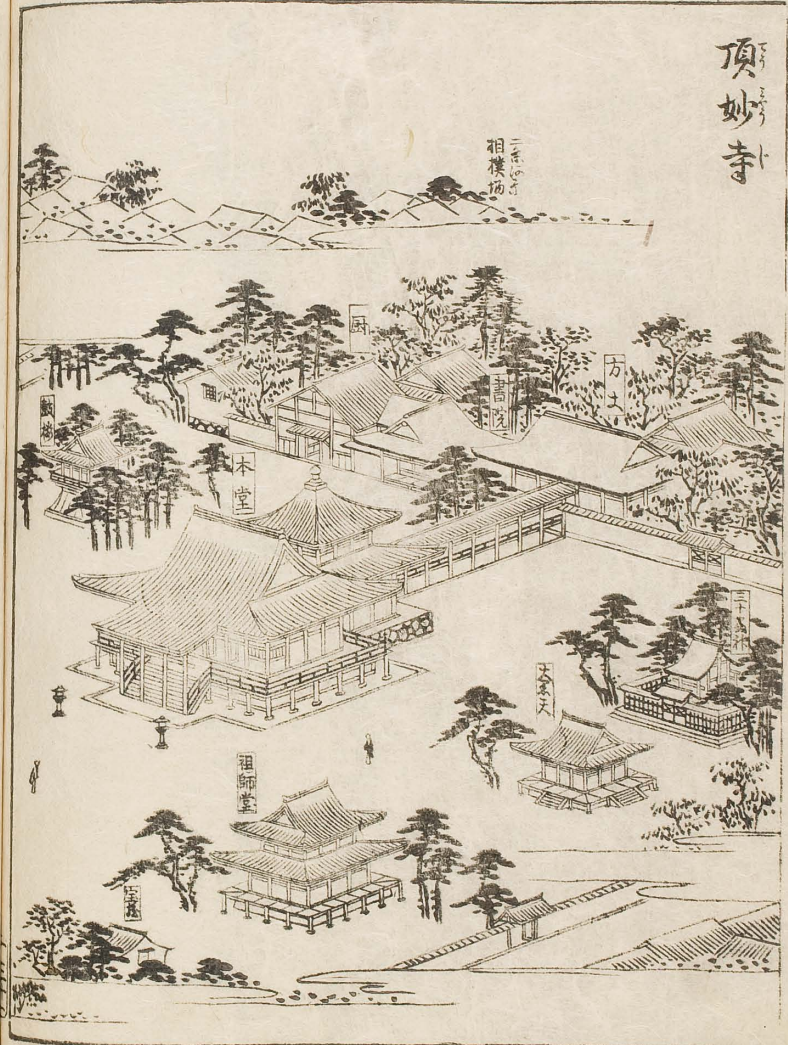 頂妙寺
てうみやうじ
二条河原
相撲場
厨
書院
方丈
鼓楼
本堂
三十番神
大黒天
祖師堂